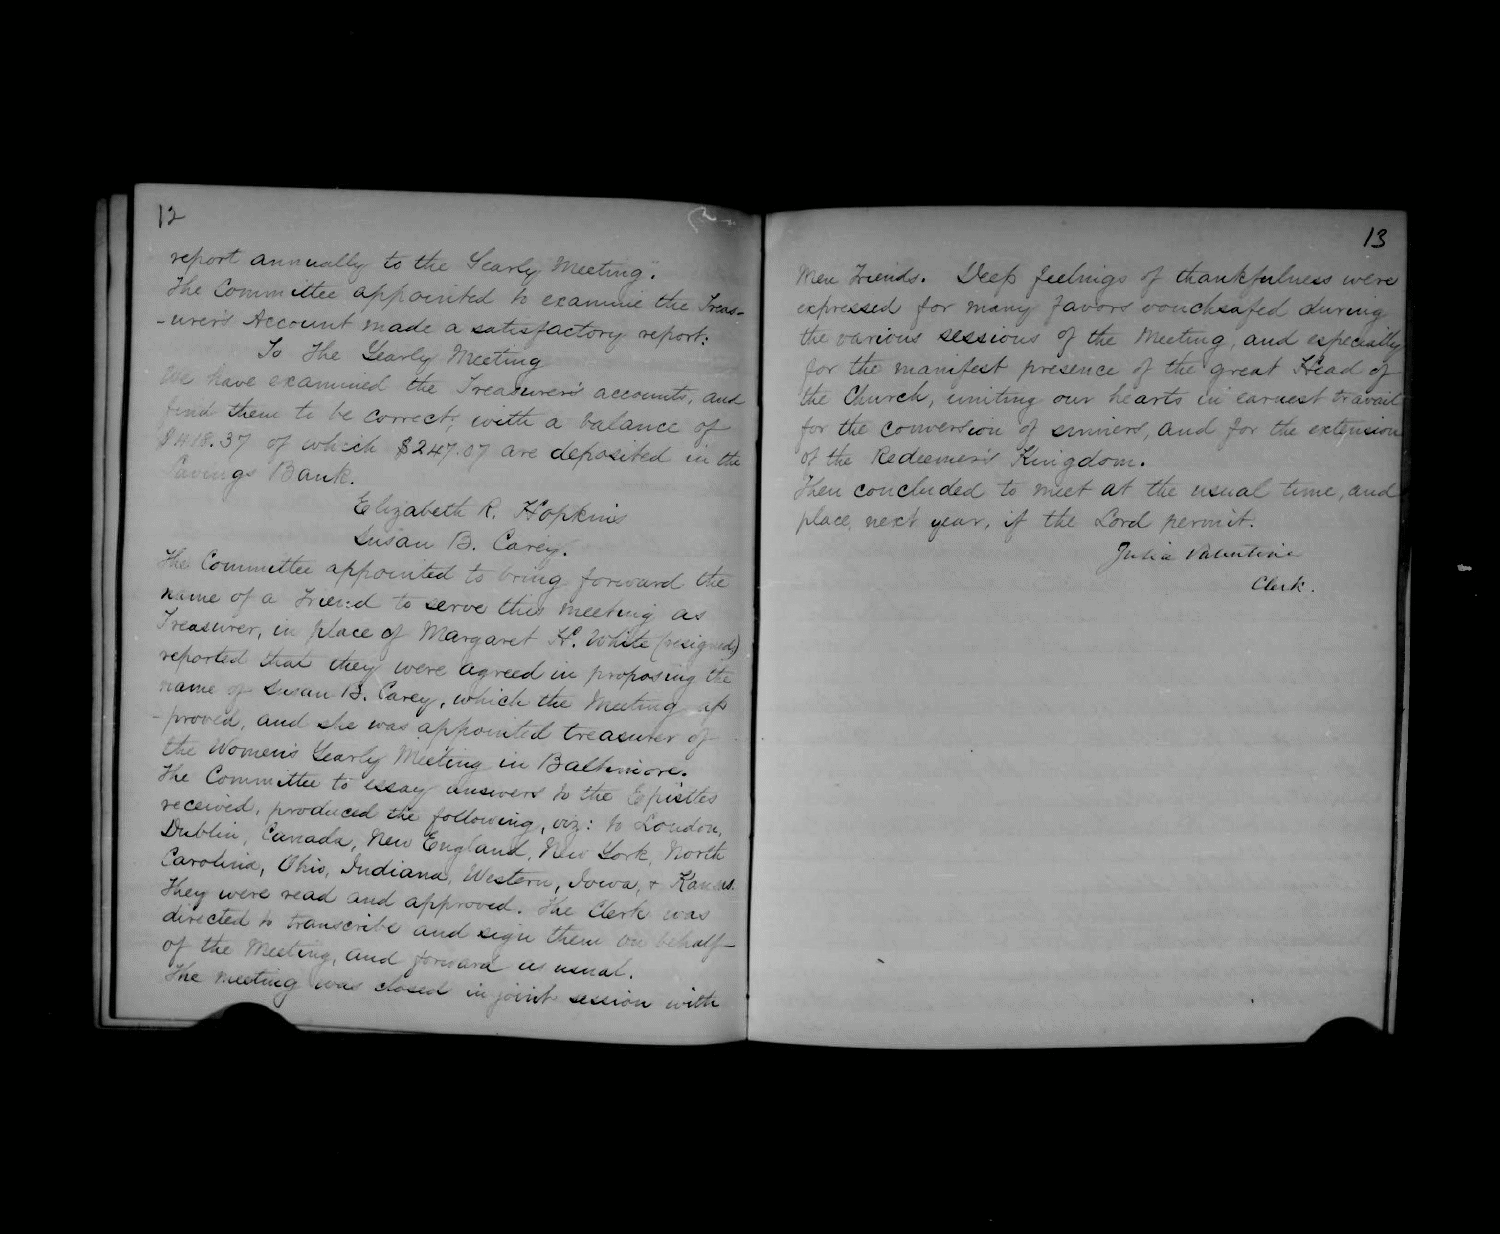 12
report annually to the Yearly Meeting".
The Committee appointed to examine the Treas-
-urer's Account, made a satisfactory report:
To The Yearly Meeting
We have examined the Treasurer's accounts, and
find them to be correct; with a balance of
$418.37 of which $247.07 are deposited in the
Savings Bank.
Elizabeth R. Hopkins
Susan B. Carey.
The Committee appointed to bring forward the
name of a Friend to serve this meeting as
Treasurer, in place of Margaret H. White (resigned)
reported that they were agreed in proposing the
name of Susan B. Carey, which the Meeting ap
-proved, and she was appointed treasurer of
the Women's Yearly Meeting in Baltimore.
The Committee to essay answers to the Epistles
received, produced the following, viz: to London,
Dublin, Canada, New England, New York, North
Carolina, Ohio, Indiana, Western, Iowa, & Kansas.
They were read and approved. The Clerk was
directed to transcribe and sign them on behalf
of the Meeting, and forward as usual.
The meeting was closed in joint session with
13
Men Friends. Deep feelings of thankfulness were
expressed for many favors vouchsafed during
the various sessions of the Meeting, and especially
for the manifest presence of the great Head of
the Church, uniting our hearts in earnest travail
for the conversion of sinners, and for the extension
of the Redeemer's Kingdom.
Then concluded to meet at the usual time, and
place, next year, if the Lord permit.
Julia Valentine
Clerk.